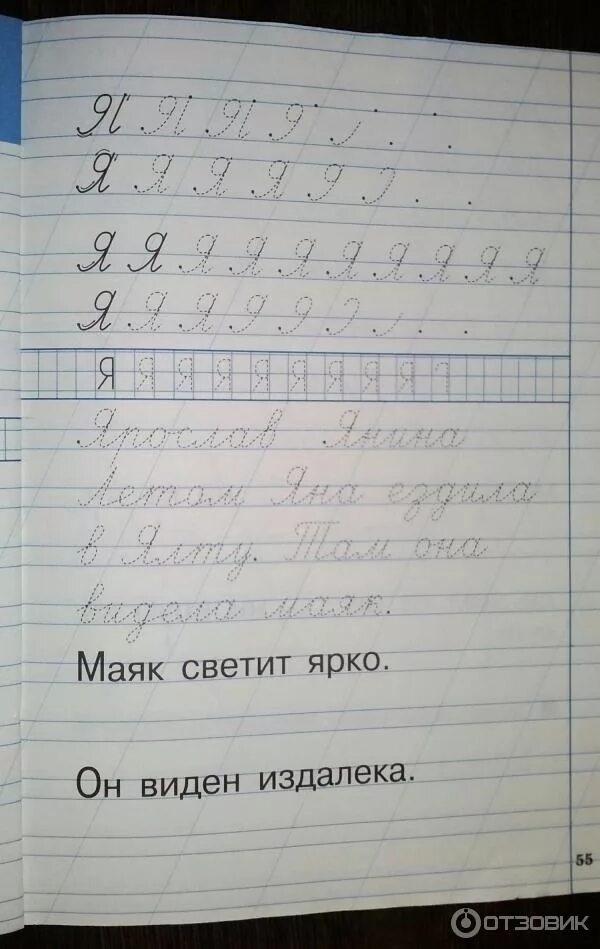 Я Я Я Я
Я Я Я Я Я
Я Я Я Я Я Я Я Я Я Я
Я Я Я
Я Я Я Я Я Я Я Я Я
Ярослав Янина
Летом Яна ездила
в Ялту. Там она
видела маяк.
Маяк светит ярко.
Он виден издалека.
55
ОТЗОВИК